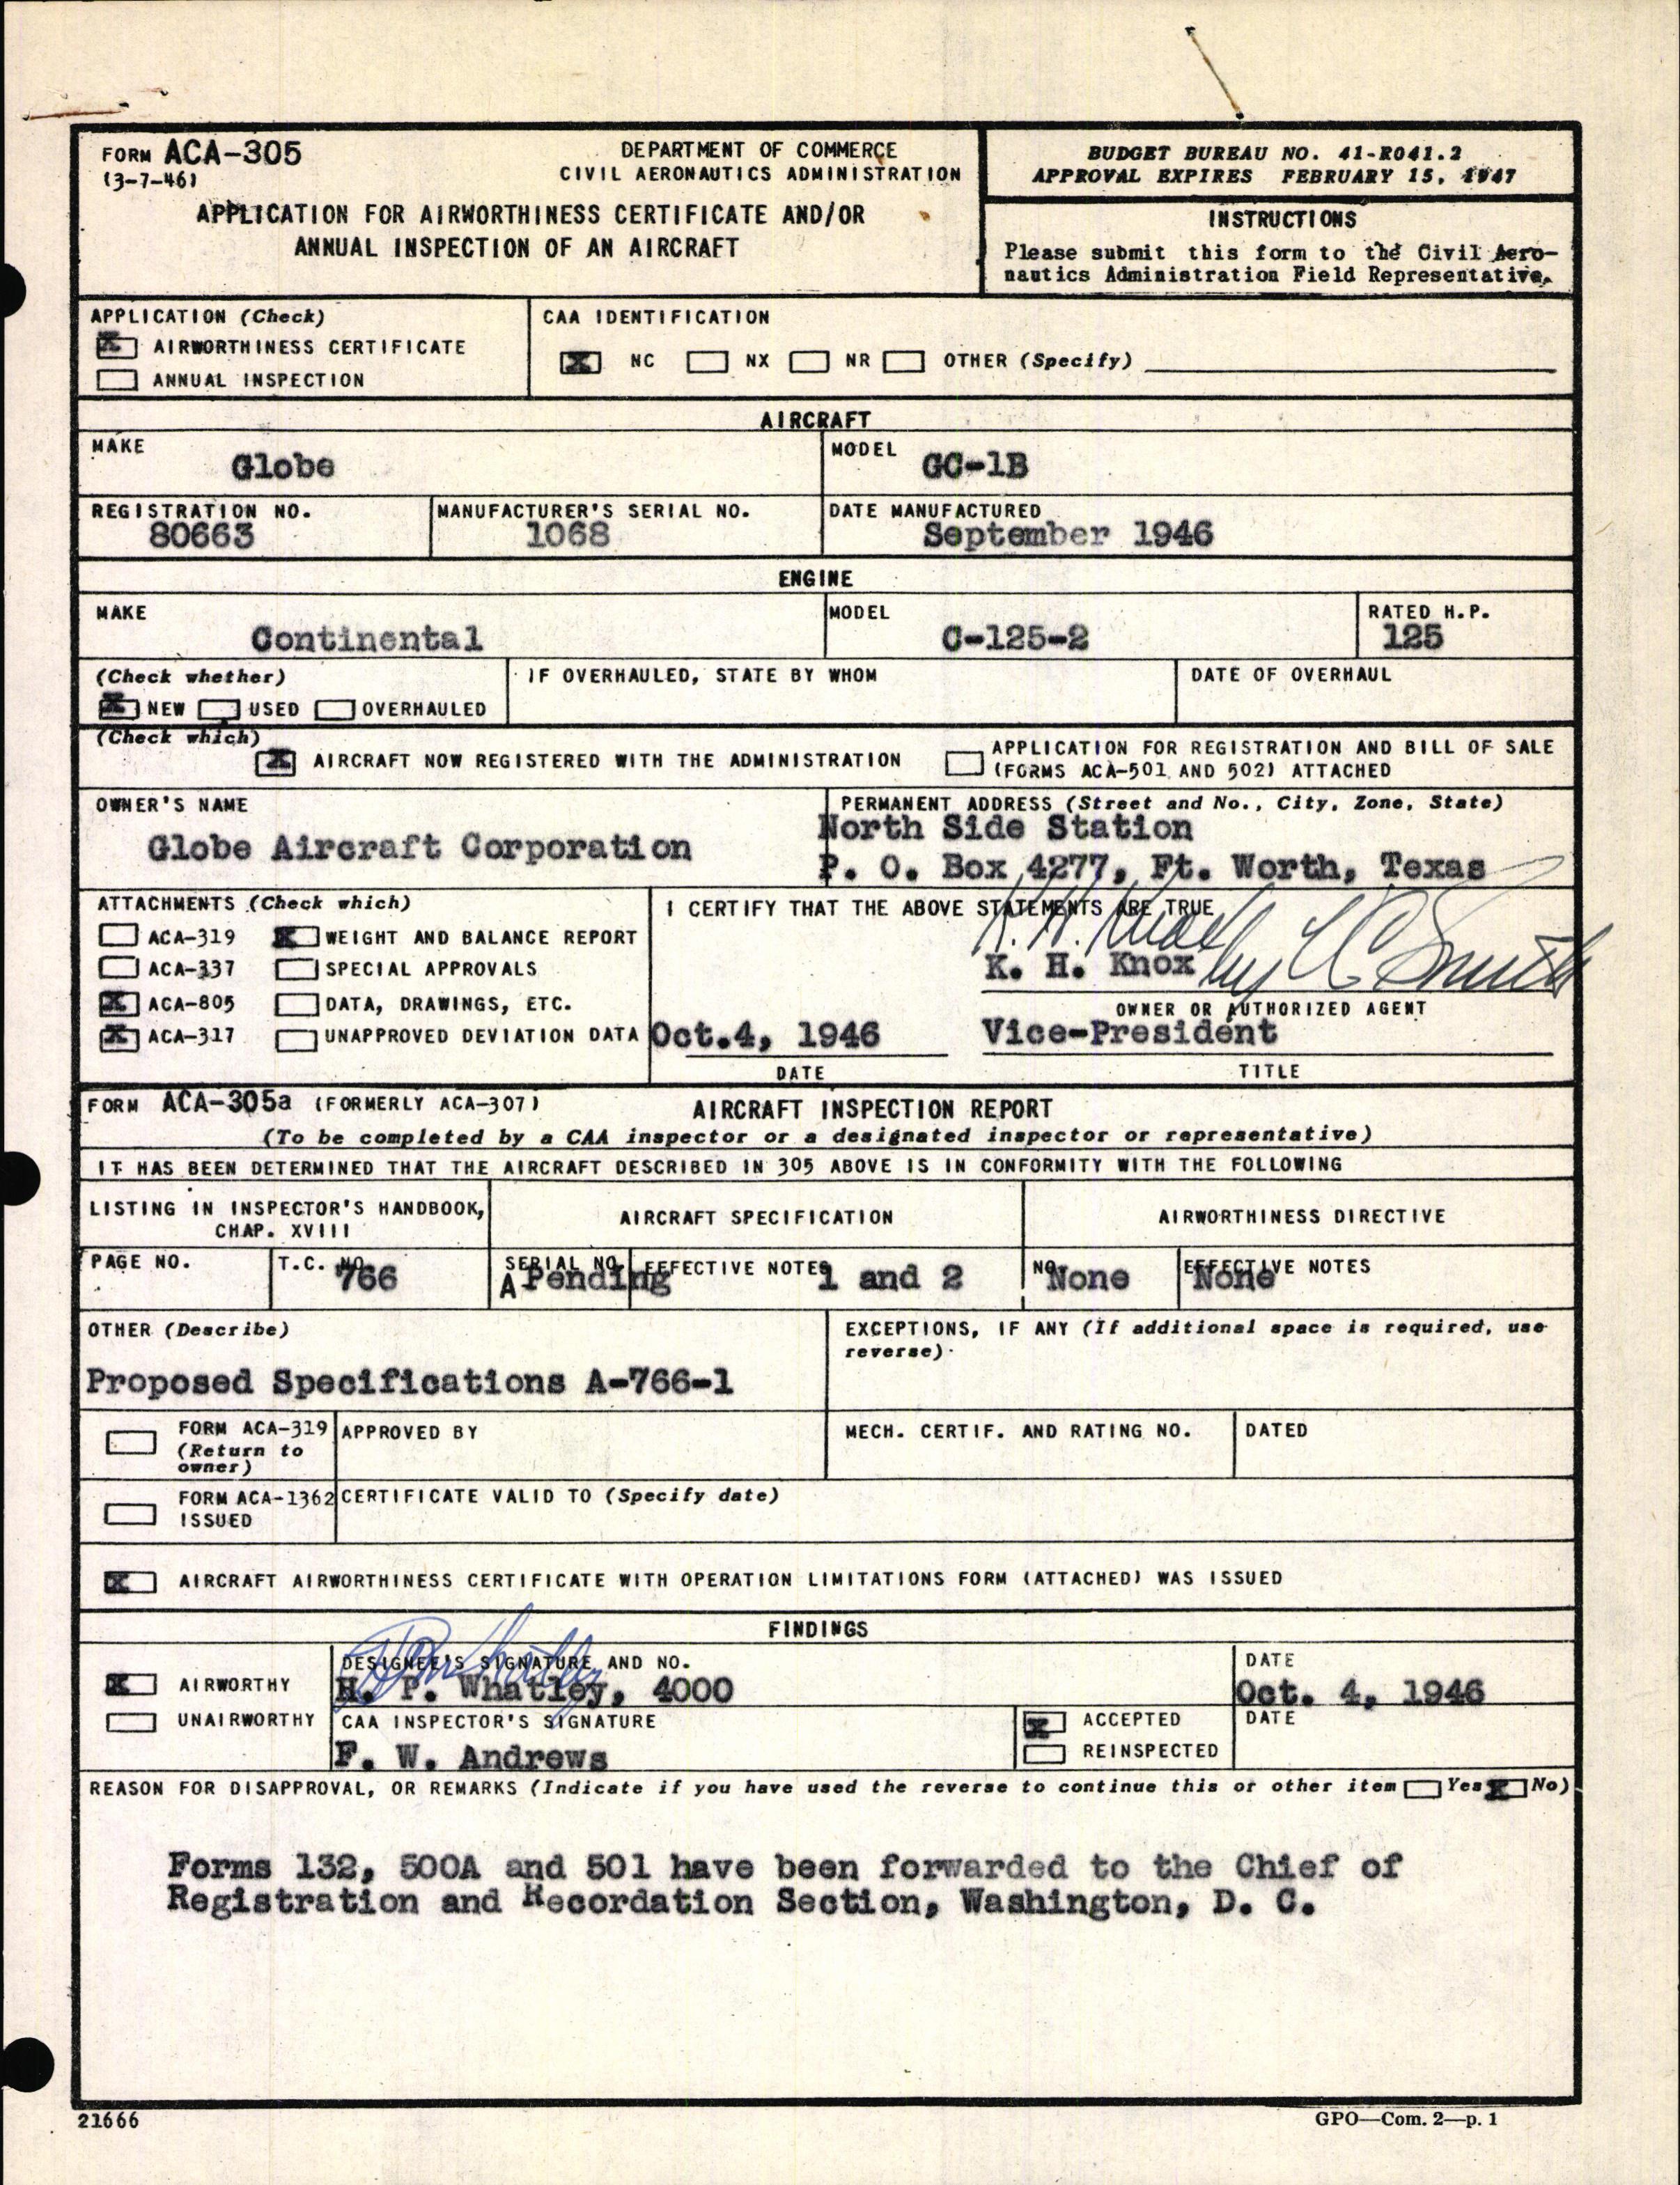 FORM ACA-305
(3-7-46)
DEPARTMENT OF COMMERCE
CIVIL AERONAUTICS ADMINISTRATION
APPLICATION FOR AIRWORTHINESS CERTIFICATE AND/OR
ANNUAL INSPECTION OF AN AIRCRAFT
BUDGET BUREAU NO. 41-R041.2
APPROVAL EXPIRES FEBRUARY 15, 1947
INSTRUCTIONS
Please submit this form to the Civil Aero-
nautics Administration Field Representative.
APPLICATION (Check)
X AIRWORTHINESS CERTIFICATE
ANNUAL INSPECTION
CAA IDENTIFICATION
X NC NX NR OTHER (Specify)
AIRCRAFT
MAKE
Globe
MODEL
GC-1B
REGISTRATION NO.
80663
MANUFACTURER'S SERIAL NO.
1068
DATE MANUFACTURED
September 1946
ENGINE
MAKE
Continental
MODEL
C-125-2
RATED H.P.
125
(Check whether)
X NEW USED OVERHAULED
IF OVERHAULED, STATE BY WHOM
DATE OF OVERHAUL
(Check which)
X AIRCRAFT NOW REGISTERED WITH THE ADMINISTRATION
APPLICATION FOR REGISTRATION AND BILL OF SALE
(FORMS ACA-501 AND 502) ATTACHED
OWNER'S NAME
Globe Aircraft Corporation
PERMANENT ADDRESS (Street and No., City, Zone, State)
North Side Station
P. O. Box 4277, Ft. Worth, Texas
ATTACHMENTS (Check which)
ACA-319 X WEIGHT AND BALANCE REPORT
ACA-337 SPECIAL APPROVALS
X ACA-805 DATA, DRAWINGS, ETC.
X ACA-317 UNAPPROVED DEVIATION DATA
I CERTIFY THAT THE ABOVE STATEMENTS ARE TRUE
K. H. Knox by L C Smith
K. H. Knox
OWNER OR AUTHORIZED AGENT
Oct.4, 1946
DATE
Vice-President
TITLE
FORM ACA-305a (FORMERLY ACA-307)
AIRCRAFT INSPECTION REPORT
(To be completed by a CAA inspector or a designated inspector or representative)
IT HAS BEEN DETERMINED THAT THE AIRCRAFT DESCRIBED IN 305 ABOVE IS IN CONFORMITY WITH THE FOLLOWING
LISTING IN INSPECTOR'S HANDBOOK,
CHAP. XVIII
AIRCRAFT SPECIFICATION
AIRWORTHINESS DIRECTIVE
PAGE NO.
T.C. NO.
766
SERIAL NO.
A Pending
EFFECTIVE NOTES
1 and 2
NO.
None
EFFECTIVE NOTES
None
OTHER (Describe)
Proposed Specifications A-766-1
EXCEPTIONS, IF ANY (If additional space is required, use
reverse).
FORM ACA-319
(Return to
owner)
APPROVED BY
MECH. CERTIF. AND RATING NO.
DATED
FORM ACA-1362
ISSUED
CERTIFICATE VALID TO (Specify date)
X AIRCRAFT AIRWORTHINESS CERTIFICATE WITH OPERATION LIMITATIONS FORM (ATTACHED) WAS ISSUED
FINDINGS
X AIRWORTHY
UNAIRWORTHY
DESIGNEE'S SIGNATURE AND NO.
HP Whatley
H. P. Whatley, 4000
DATE
Oct. 4, 1946
CAA INSPECTOR'S SIGNATURE
F. W. Andrews
X ACCEPTED
REINSPECTED
DATE
REASON FOR DISAPPROVAL, OR REMARKS (Indicate if you have used the reverse to continue this or other item Yes X No)
Forms 132, 500A and 501 have been forwarded to the Chief of
Registration and Recordation Section, Washington, D. C.
21666
GPO—Com. 2—p. 1